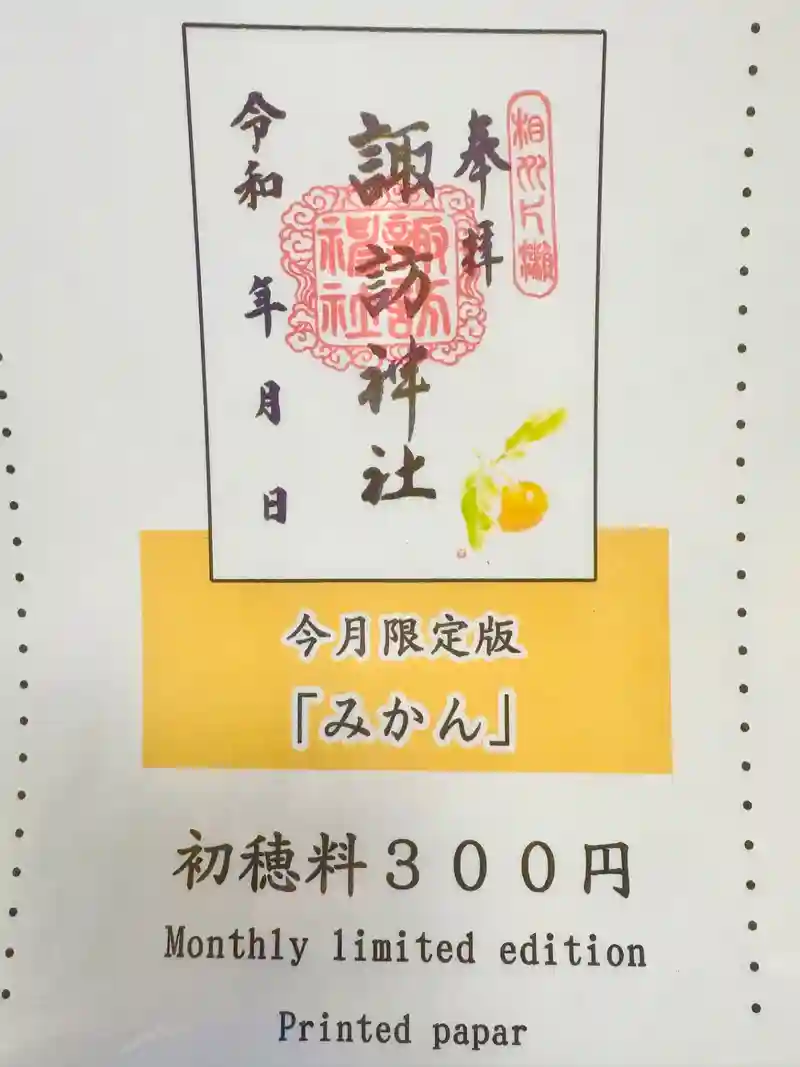 相州片瀬
奉拝
諏訪神社
諏訪神社
令和 年 月 日
今月限定版
「みかん」
初穂料３００円
Monthly limited edition
Printed papar